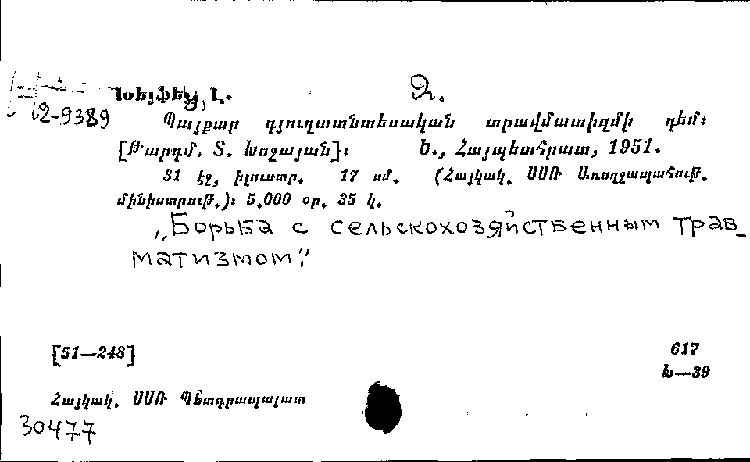 Խեյֆեց, Լ. Զ.
2-9389
Պայքար գյուղատնտեսական տրավմատիզմի դեմ։
[Թարգմ. Տ. Խոշայան]։ Ե., Հայպետհրատ, 1951.
31 էջ, իլուստր. 17 սմ. (Հայկակ. ՍՍՌ Առողջապահութ.
մինիստրութ.)։ 5.000 օր. 35 կ.
„Борьба с сельскохозяйственным трав_
матизмом"
[51—248] 617
Խ—39
Հայկակ. ՍՍՌ Պետգրապալատ
30477